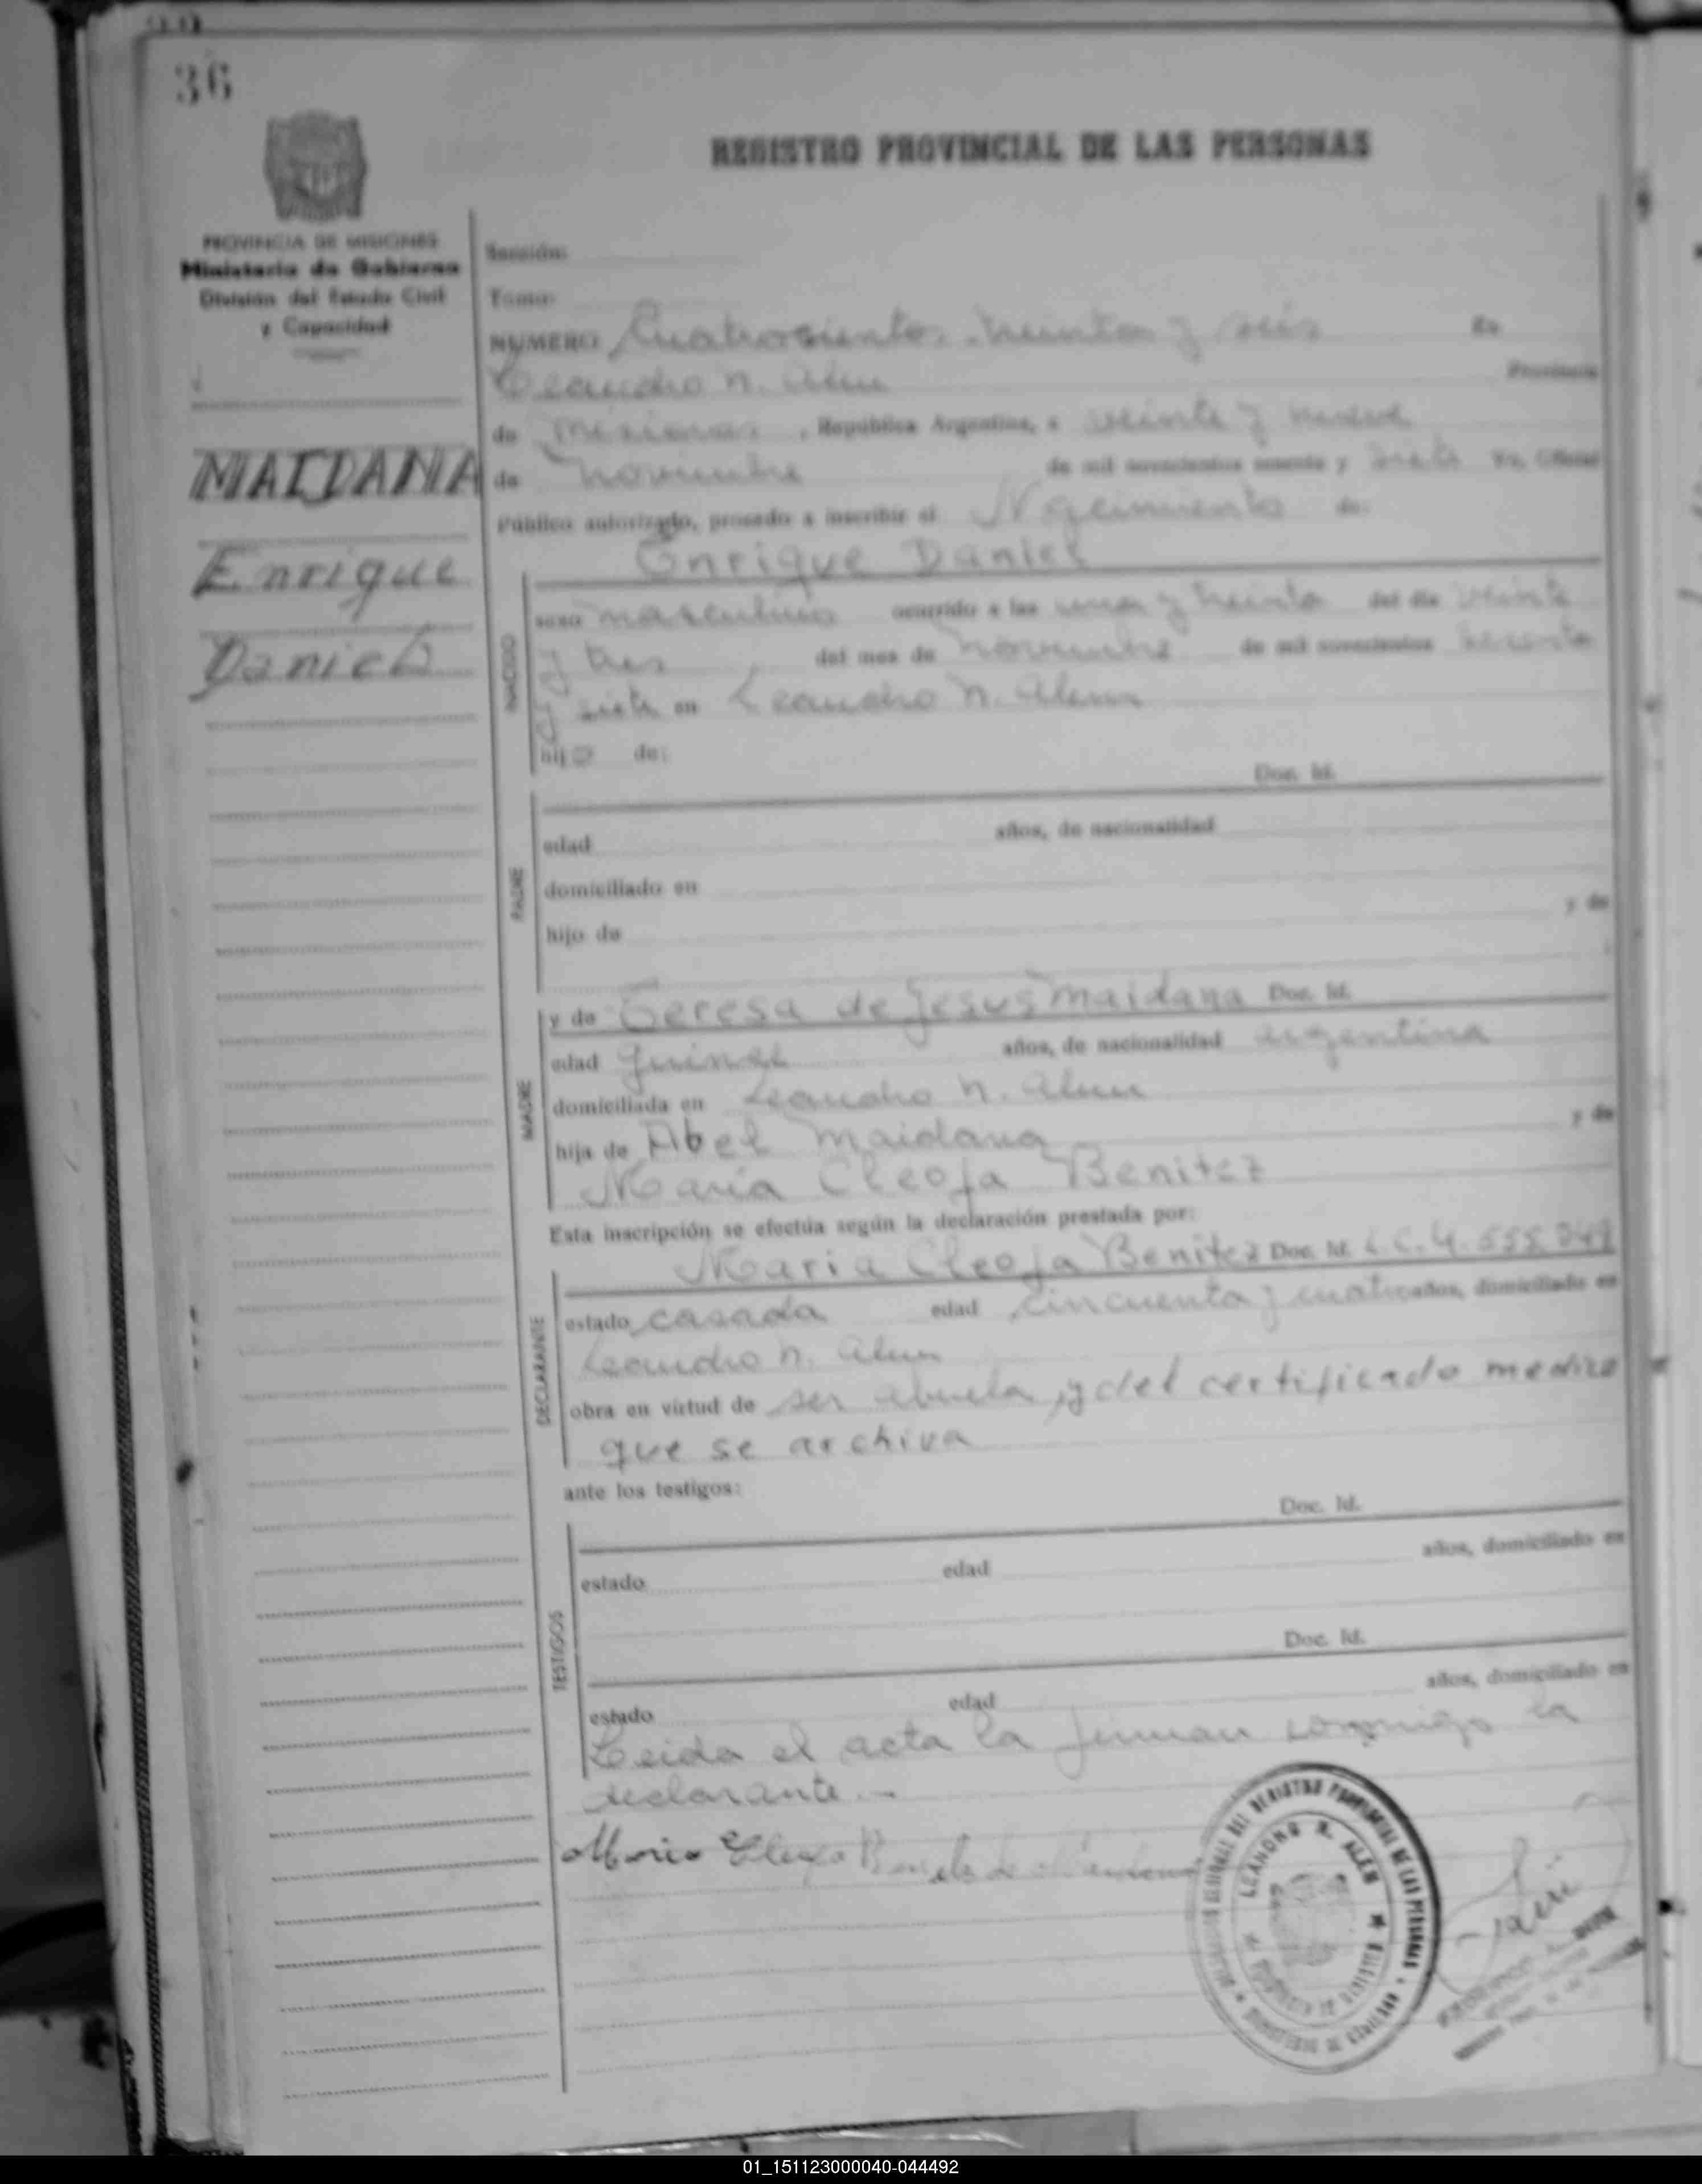 36
REGISTRO PROVINCIAL DE LAS PERSONAS
PROVINCIA DE MISIONES
Ministerio de Gobierno
División del Estado Civil
y Capacidad
MAIDANA
Enrique
Daniel
Sección:
Tomo:
NUMERO Cuatrosientos treinta y seis En
Leandro N. Alem Provincia
de Misiones, República Argentina, a veinte y nueve
de noviembre de mil novecientos sesenta y siete Yo, Oficial
Público autorizado, procedo a inscribir el Nacimiento de:
Enrique Daniel
NACIDO
sexo masculino ocurrido a las una y treinta del día veinte
y tres del mes de noviembre de mil novecientos sesenta
y siete en Leandro N. Alem
hijo de:
Doc. Id.
PADRE
edad años, de nacionalidad
domiciliado en
hijo de y de
MADRE
y de Teresa de Jesus Maidana Doc. Id.
edad quince años, de nacionalidad argentina
domiciliada en Leandro N. Alem
hija de Abel Maidana y de
Maria Cleofa Benitez
Esta inscripción se efectúa según la declaración prestada por:
Maria Cleofa Benitez Doc. Id. L.C. 4.555.
DECLARANTE
estado casada edad cincuenta y cuatro años, domiciliado en
Leandro N. Alem
obra en virtud de ser abuela, y del certificado medico
que se archiva
ante los testigos:
Doc. Id.
TESTIGOS
estado edad años, domiciliado en
Doc. Id.
estado edad años, domiciliado en
Leida el acta la firman conmigo la
declarante.-
Maria
REGISTRO PROVINCIAL DE LAS PERSONAS
LEANDRO N. ALEM
01_151123000040-044492